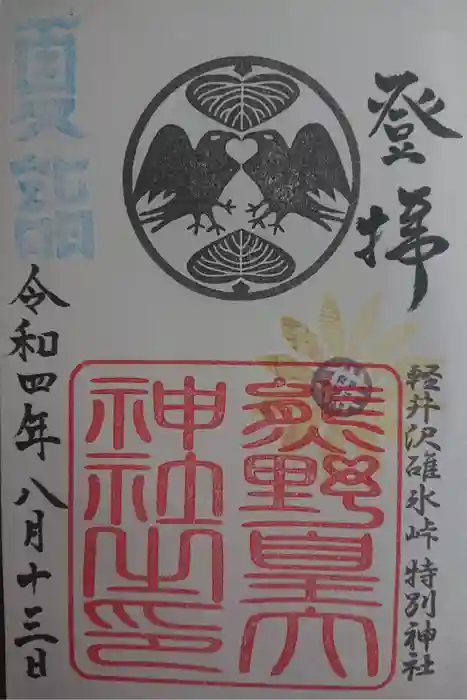 登拝
軽井沢碓氷峠 特別神社
熊野皇大
神社之印
令和四年八月十三日